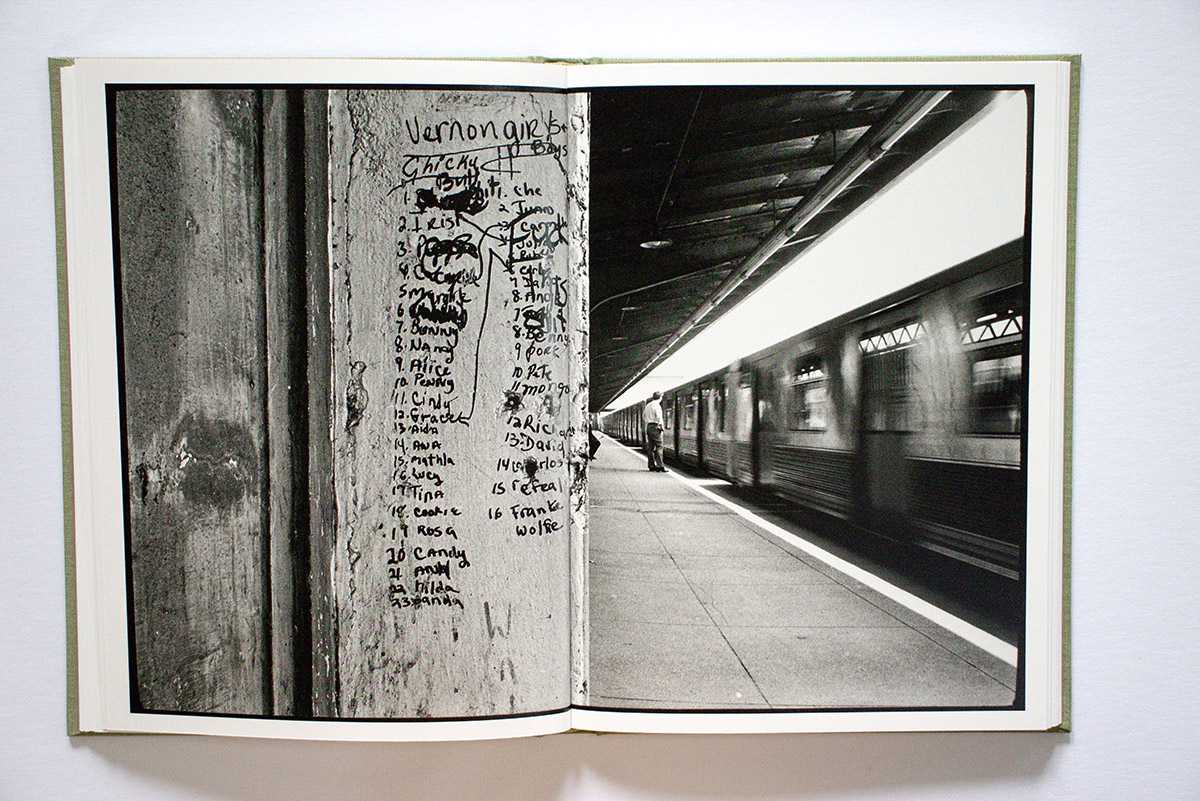 Vernon girls +
Boys
Chicky
Butt
1.
2. Irist
3.
4.
5 Margie
6
7. Benny
8. Nancy
9. Alice
10. Penny
11. Cindy
12. Grace
13. Aida
14. ANA
15. Mathla
16. Lucy
17. Tina
18. Cookie
19 ROSA
20 CANDY
21 ANA
22 hilda
23
1. Che
2 Juan
3
8. Angel
7
8. Benny
9 Pork
10. Pete
11 mongo
12 Ric
13. David
14 carlos
15 refeal
16 Franke
Wolfe
W
n